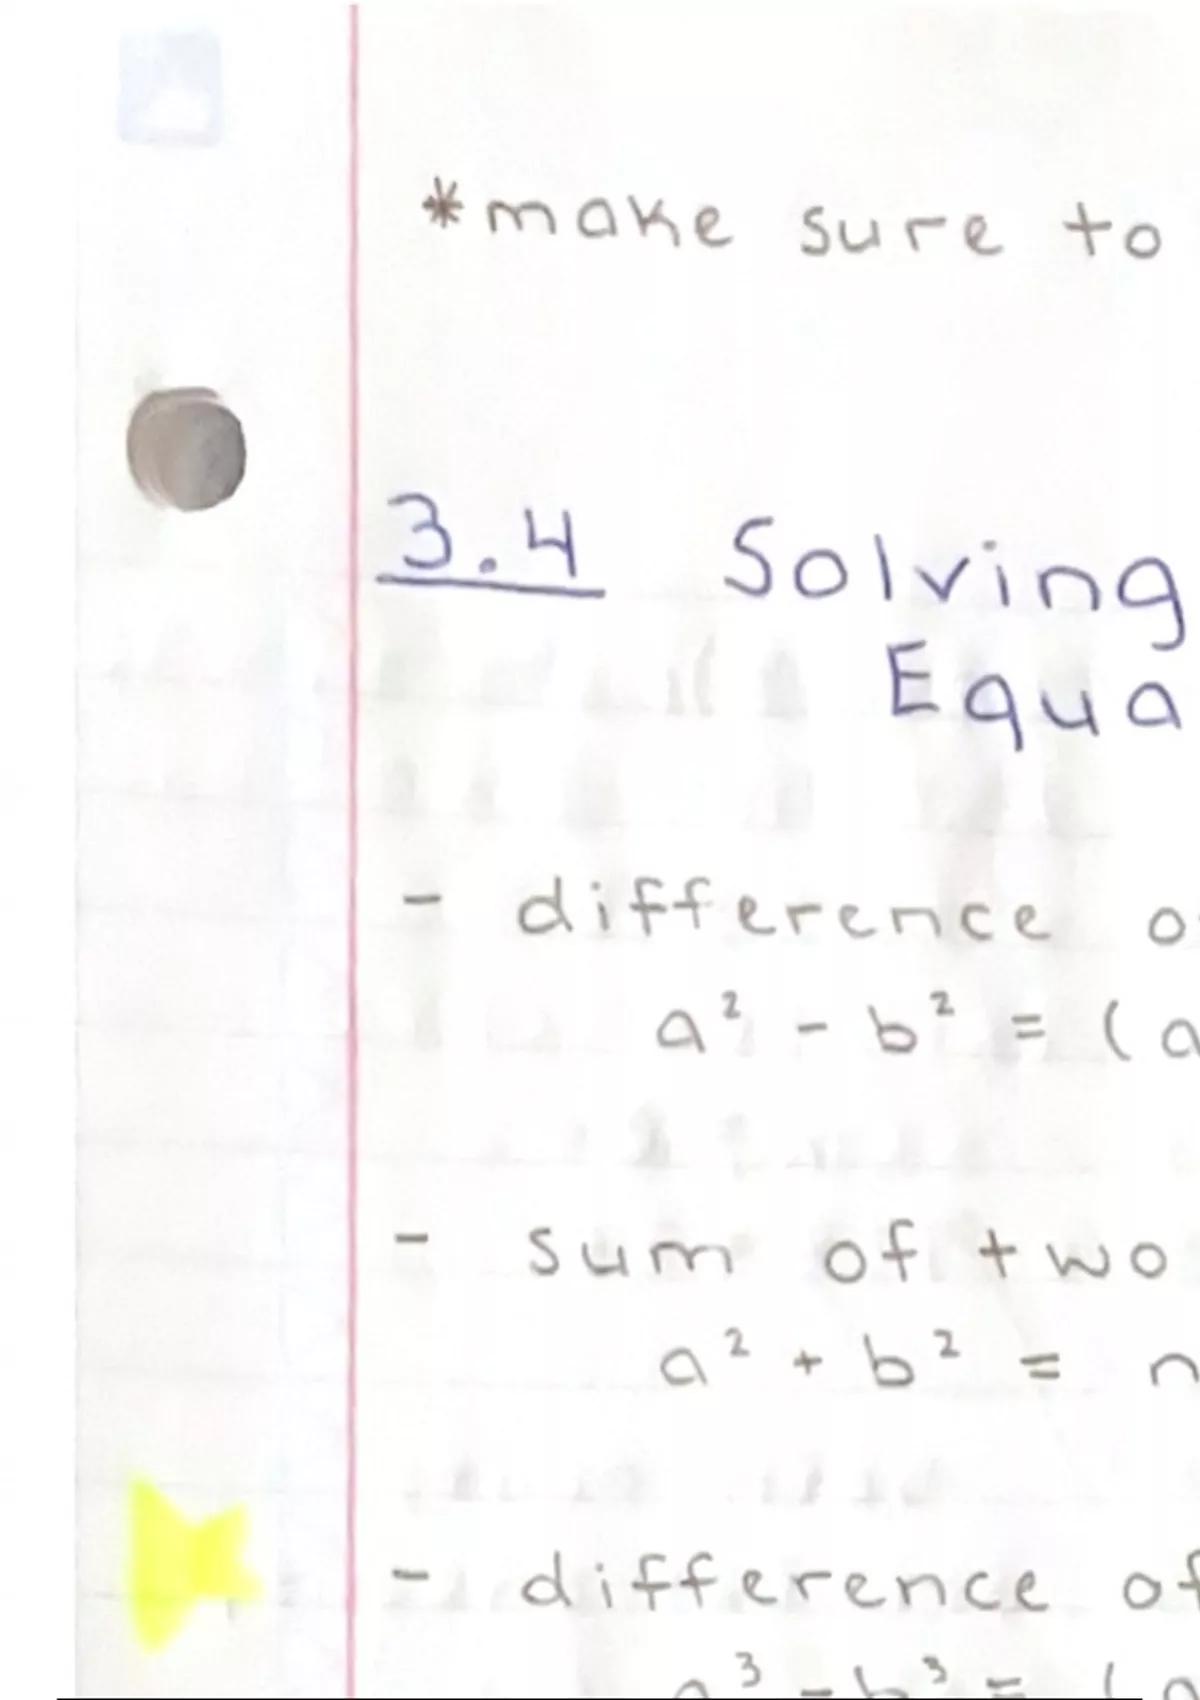 *make sure to
3.4 Solving
Equa
- difference o
a² - b² = (a
- sum of two
a² + b² = n
- difference of
a³ - b³ = (a